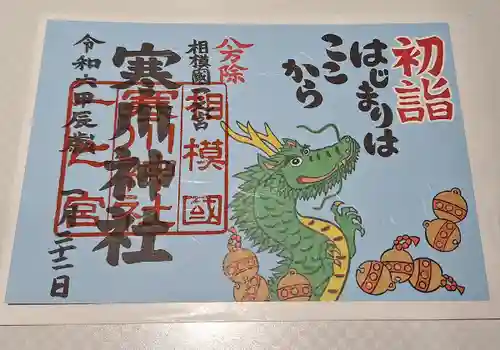 初詣
はじまりは
ここ
から
八方除
相模國一之宮
相模國
寒川神社
令和六甲辰歳
一月二十一日